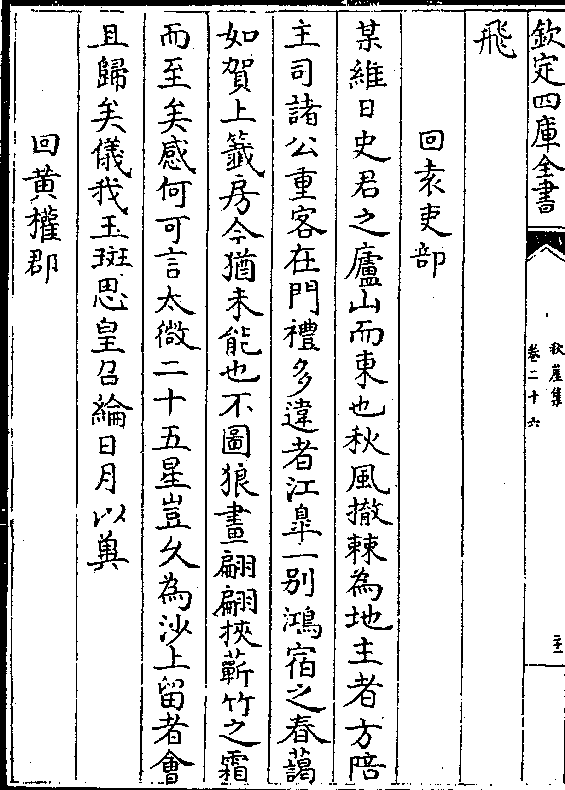 欽定四庫全書
秋崖集
卷二十六
飛
回袁吏部
某維日史君之廬山而東也秋風撤棘為地主者方陪
主司諸公重客在門禮多違者江臯一别鴻宿之春藹
如賀上籖房今猶未能也不圖狼畫翩翩挾蘄竹之霜
而至矣感何可言太微二十五星豈久為沙上留者會
且歸矣儀我玉斑思皇召綸日月以兾
回黄權郡